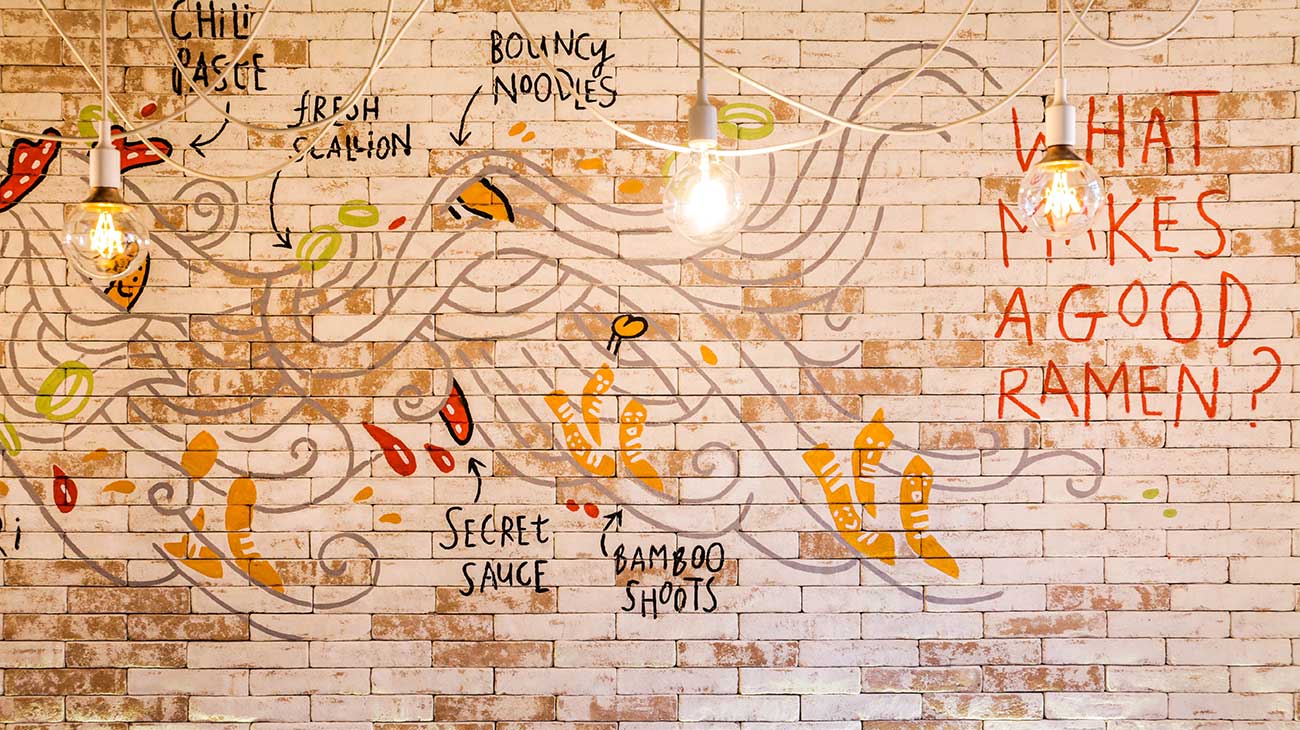 CHILI
PASTE
FRESH
SCALLION
BOUNCY
NOODLES
SECRET
SAUCE
BAMBOO
SHOOTS
WHAT
MAKES
A GOOD
RAMEN?